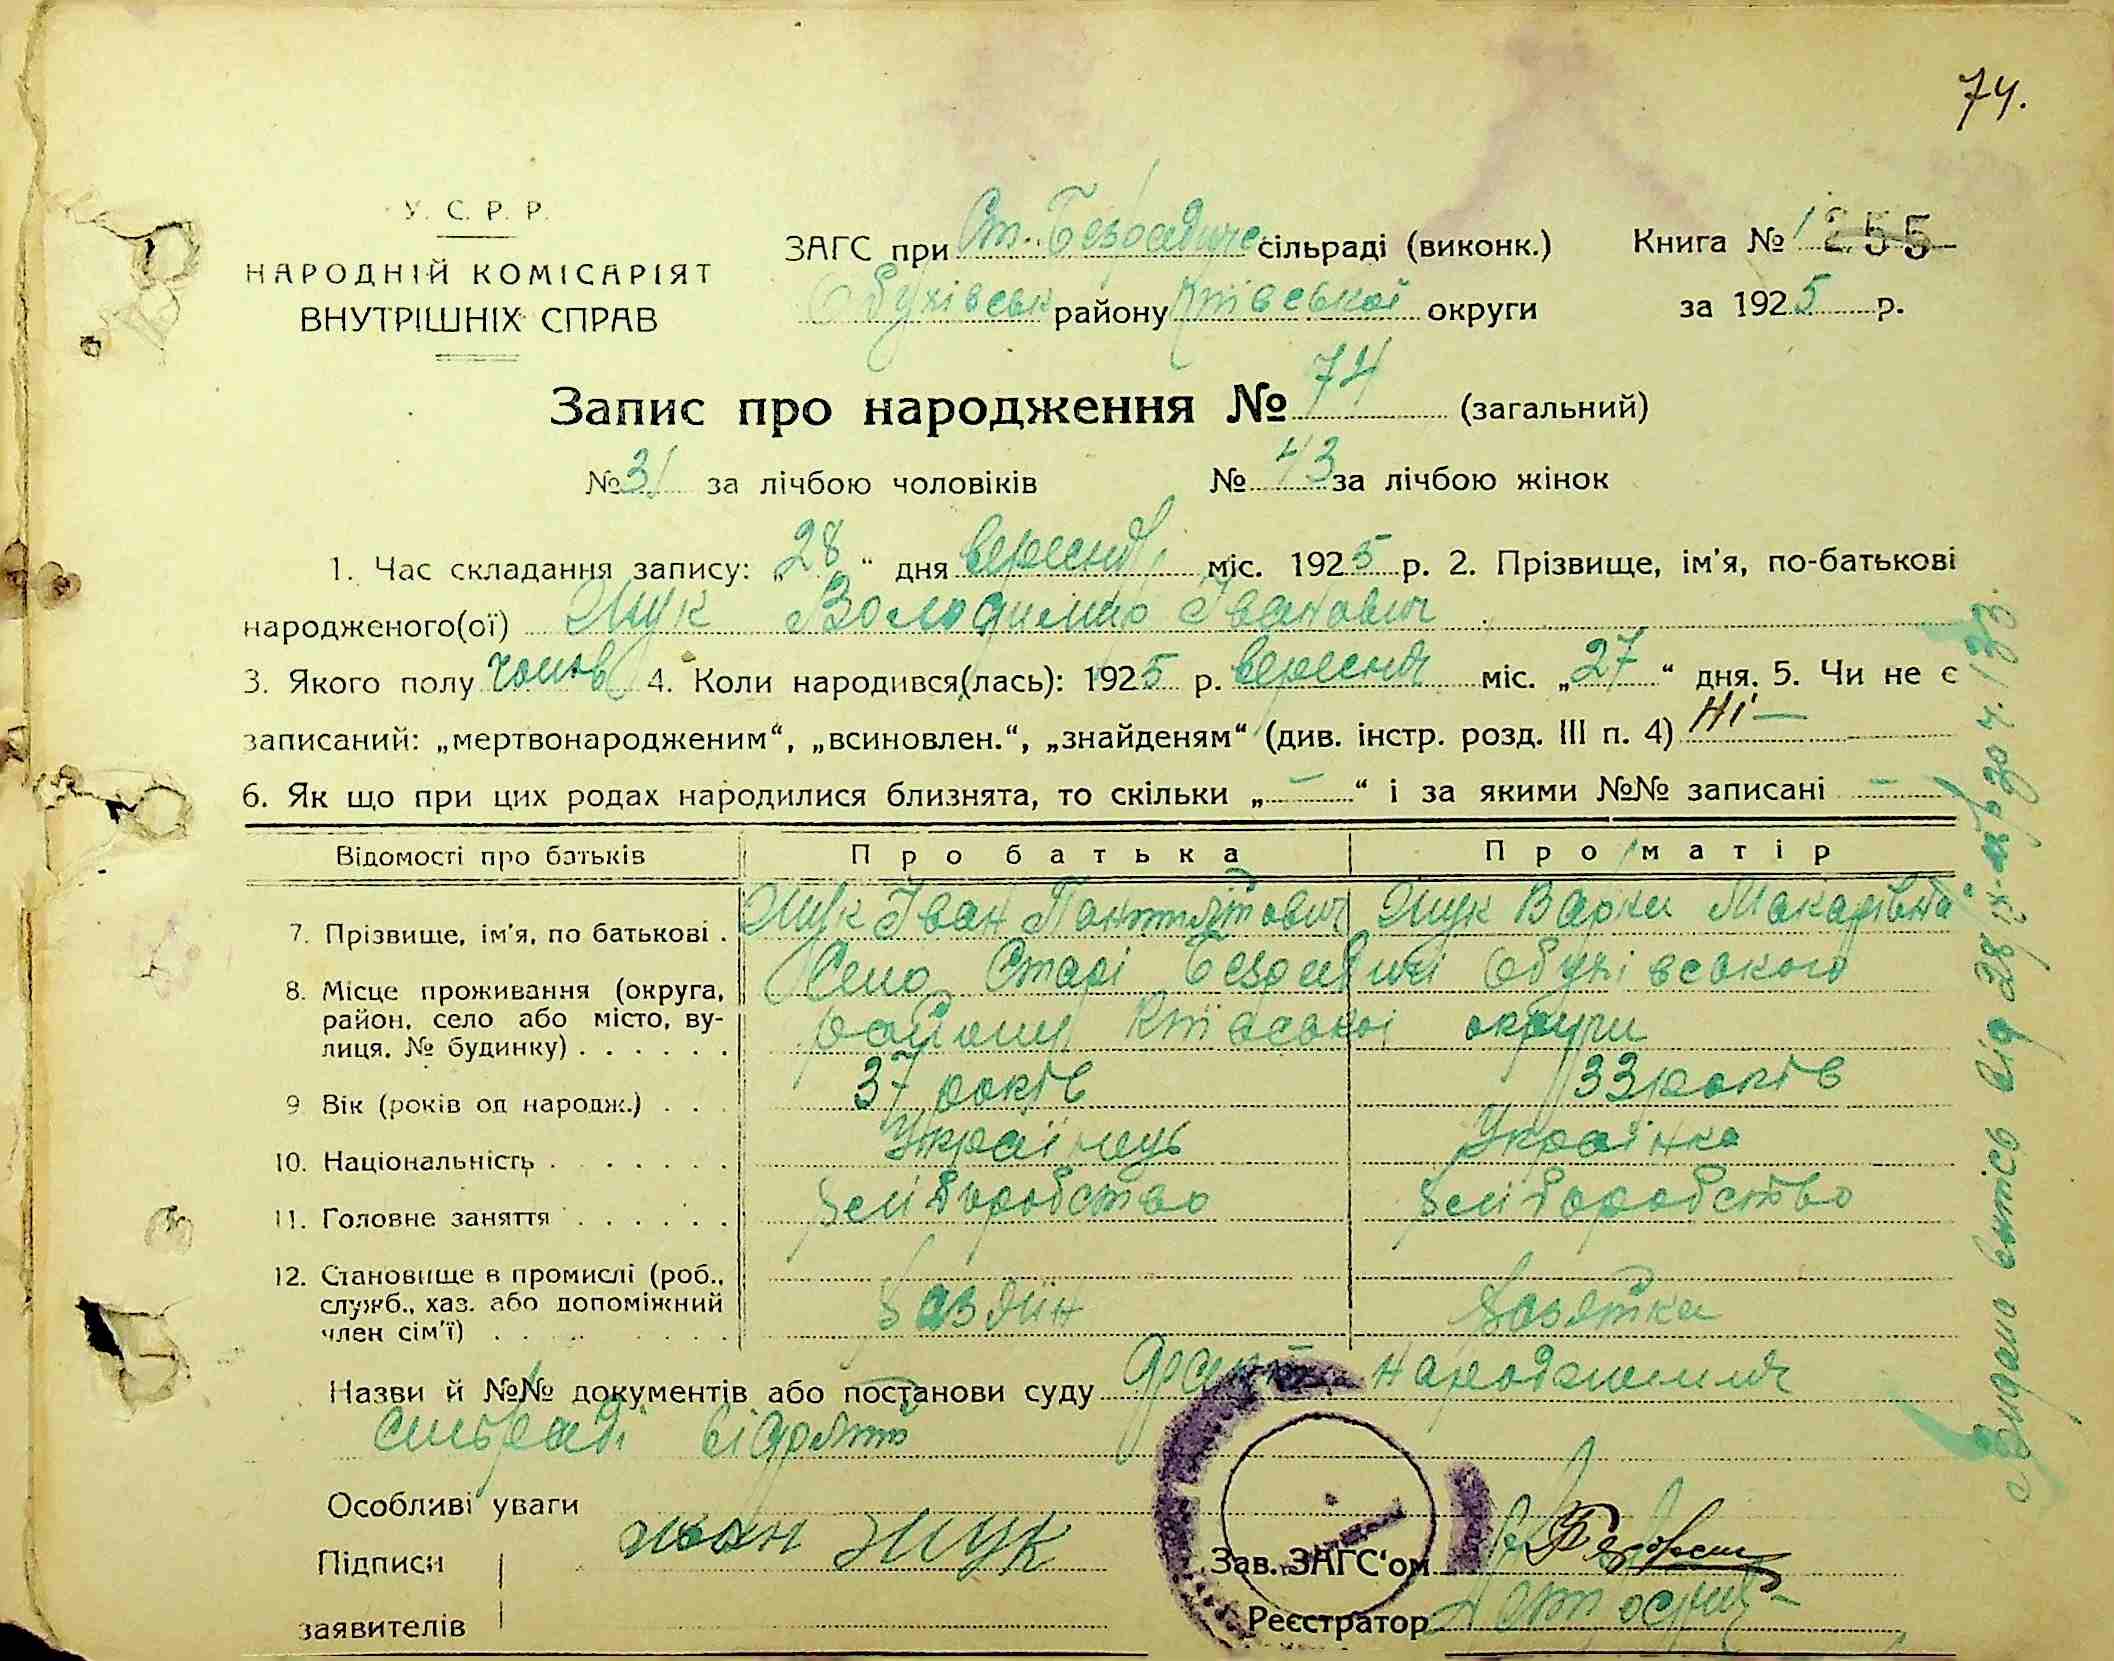 74.
У. С. Р. Р.
НАРОДНІЙ КОМІСАРІЯТ
ВНУТРІШНІХ СПРАВ
ЗАГС при Ст. Безрадиче сільраді (виконк.)
Обухівськ району Київської округи
Книга № 1 255
за 1925 р.
Запис про народження № 74 (загальний)
№ 31 за лічбою чоловіків № 43 за лічбою жінок
1. Час складання запису: „28“ дня вересня міс. 1925 р. 2. Прізвище, ім'я, по-батькові
народженого(ої) Жук Володимир Іванович
3. Якого полу чолов 4. Коли народився(лась): 1925 р. вересня міс. „27“ дня. 5. Чи не є
записаний: „мертвонародженим“, „всиновлен.“, „знайденям“ (див. інстр. розд. III п. 4) Ні —
6. Як що при цих родах народилися близнята, то скільки „—“ і за якими №№ записані —
Відомості про батьків Про батька Про матір
7. Прізвище, ім'я, по батькові . Жук Іван Жук Варка Макарівна
8. Місце проживання (округа, Село Старі Безрадичі Обухівського
район, село або місто, ву- району Київської округи
лиця, № будинку) . . . . . .
9 Вік (років од народж.) . . . 37 років 33 років
10. Національність . . . . . . . Українець Українка
11. Головне заняття . . . . . . Хліборобство Хліборобство
12. Становище в промислі (роб.,
служб., хаз. або допоміжний Хазяїн Хазяйка
член сім'ї) . . . . . . . .
Назви й №№ документів або постанови суду народження
сільраді
Особливі уваги
Підписи Іван Жук Зав. ЗАГС'ом
заявителів Реєстратор
Видано витісь від 28